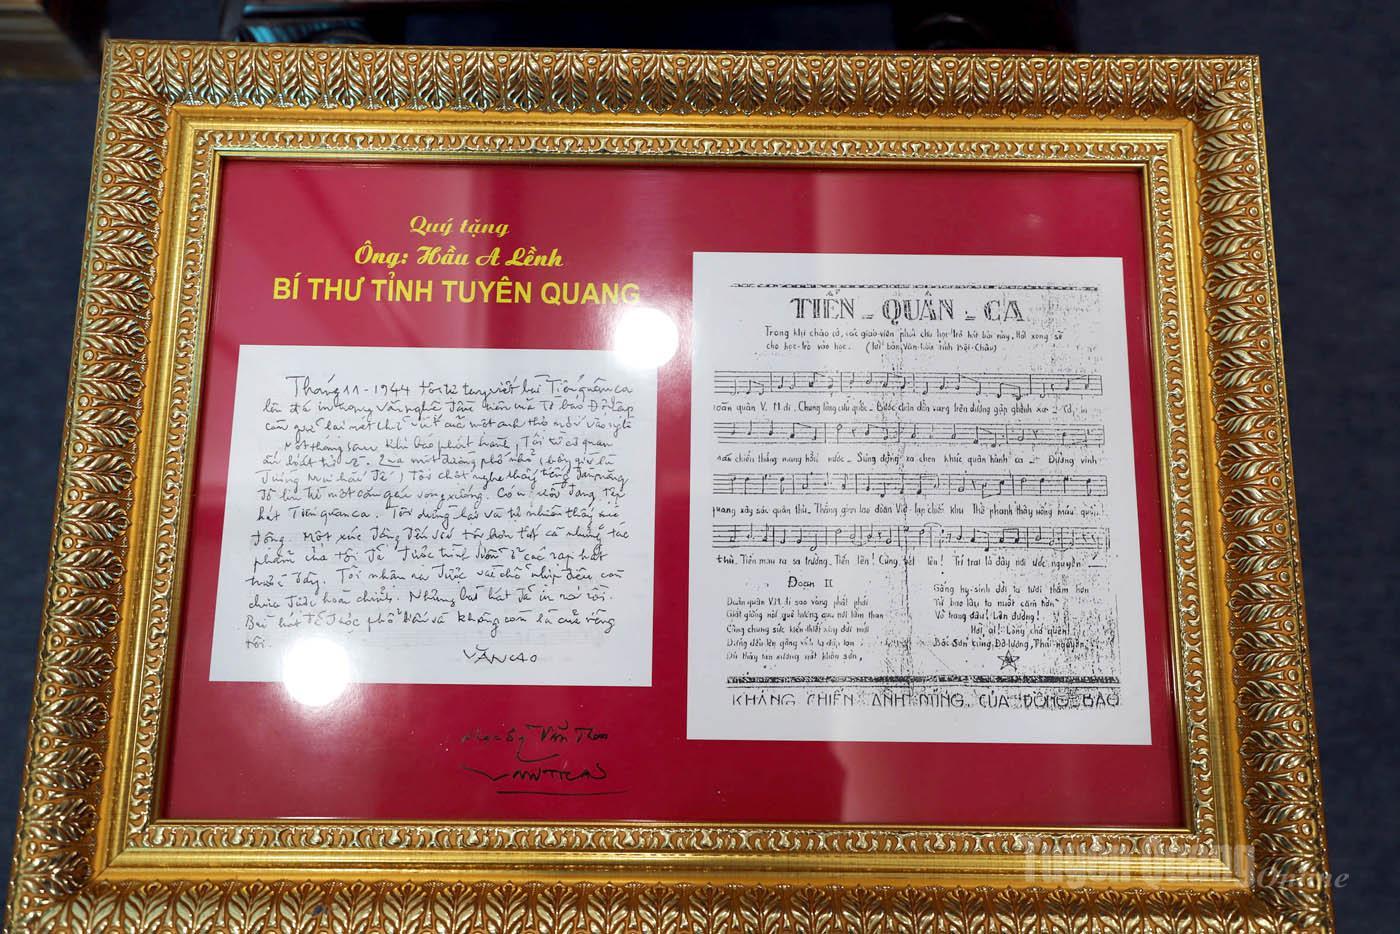 Quý tặng
Ông: Hầu A Lềnh
BÍ THƯ TỈNH TUYÊN QUANG
Tháng 11-1944 tôi tự tay viết bài Tiến quân ca
lên đá in trong văn nghệ đầu tiên của Tờ báo Độc Lập
còn giữ lại nét chữ viết của một anh thợ mới vào nghề
Một tháng sau khi báo phát hành, tôi từ cơ quan
ấn loát trở về. Qua một đường phố nhỏ (bây giờ là
đường Mai Hắc Đế) tôi chợt nghe thấy tiếng
từ một căn gác vọng xuống. Có người đang tập
hát Tiến quân ca. Tôi dừng lại và tự nhiên thấy xúc
động. Một xúc động đến với tôi hơn tất cả những tác
phẩm của tôi đã được trình diễn ở các rạp hát
trước đây. Tôi nhận ra được vài chỗ nhịp điệu còn
chưa được hoàn chỉnh. Những bài hát đã in ra rồi.
Bài hát đã được phổ biến và không còn là của riêng
tôi.
VĂN CAO
Nhạc Sỹ Văn Thao
TIẾN _ QUÂN _ CA
Trong khi chào cờ, các giáo-viên phải cho học-trò hát bài này, Hát xong sẽ
cho học-trò vào học.
Đoàn quân V.M đi. Chung lòng cứu quốc. Bước chân dồn vang trên đường gập ghềnh xa - Cờ in
máu chiến thắng mang hồn nước - Súng đứng xa chen khúc quân hành ca - Đường vinh
quang xây xác quân thù. Thắng gian lao đoàn Việt lập chiến khu Thề phanh thây uống máu quân
thù. Tiến mau ra sa trường. Tiến lên! Cùng thét lên! Trí trai là đây nơi ước nguyền
Đoạn II
Đoàn quân V.M đi sao vàng phất phới
Giắt giống nòi quê hương qua nơi lầm than
Cùng chung sức kiến thiết xây đời mới
Đứng đều lên gông xích ta đập tan
thù xương máu
Gắng hy-sinh đời ta tươi thắm hơn
Từ bao lâu ta nuốt căm hờn
Võ trang đâu! Lên đường!
Hỡi, ai! Lòng chớ quên!
Bắc Sơn cùng Đô-lương, Thái-nguyên
KHÁNG CHIẾN ANH DŨNG CỦA ĐỒNG BÀO
Tuyên Quang Online